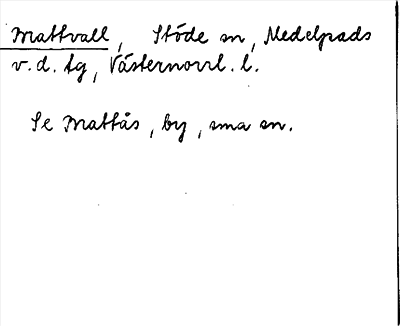 Mattvall, Stöde sn, Medelpads
v.d. tg, Västernorrl. l.
Se Mattås, by, sma sn.